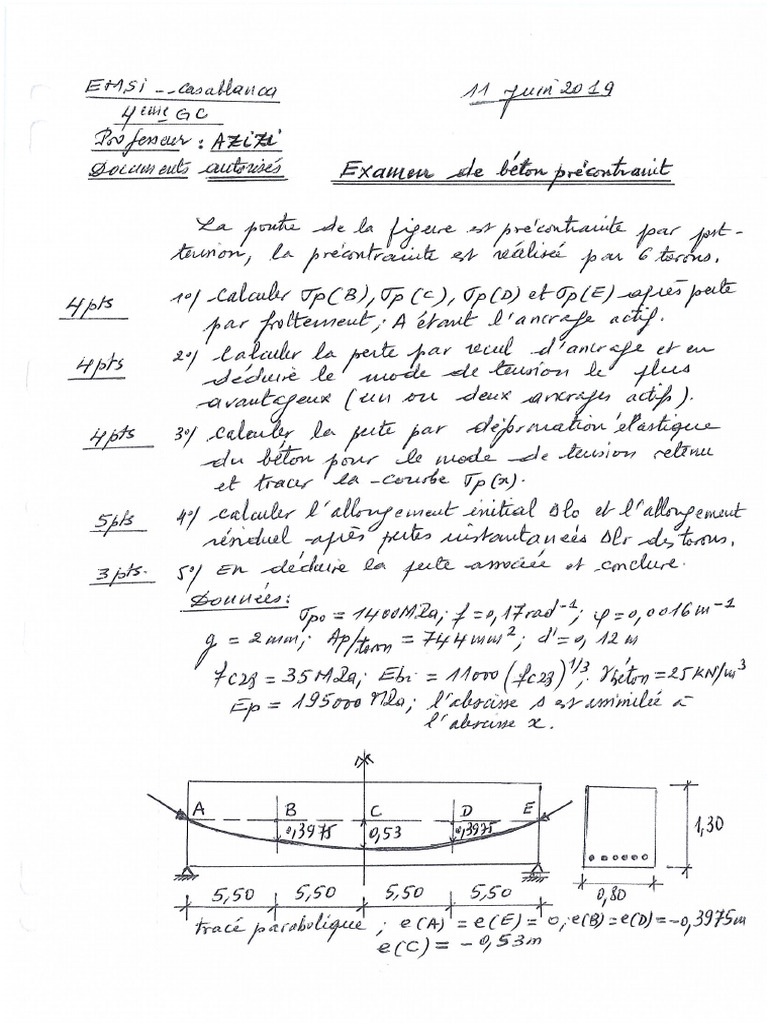 EMSi -- Casablanca
11 Juin 2019
4ème GC
Professeur : AZiZi
Documents autorisés
Examen de béton précontraint
La poutre de la figure est précontrainte par post-
tension, la précontrainte est réalisée par 6 torons.
4pts
1°/ Calculer σp(B), σp(C), σp(D) et σp(E) après perte
par frottement ; A étant l'ancrage actif.
4pts
2°/ Calculer la perte par recul d'ancrage et en
déduire le mode de tension le plus
avantageux (un ou deux ancrages actifs).
4pts
3°/ calculer la perte par déformation élastique
du béton pour le mode de tension retenu
et tracer la courbe σp(x).
5pts
4°/ calculer l'allongement initial Δlo et l'allongement
résiduel après pertes instantanées Δlr des torons.
3pts.
5°/ En déduire la perte associée et conclure.
Données:
σpo = 1400MPa; f=0,17rad⁻¹; φ=0,0016m⁻¹
g = 2mm; Ap/toron = 744mm²; d'=0,12m
fc28 = 35MPa; Ebi = 11000(fc28)^1/3; γbéton=25KN/m³
Ep = 195000MPa; l'abscisse s est assimilée à
l'abscisse x.
A B C D E
0,3975 0,53 0,3975
1,30
5,50 5,50 5,50 5,50
0,80
tracé parabolique ; e(A) = e(E) = 0, e(B)=e(D)=-0,3975m
e(C) = -0,53m